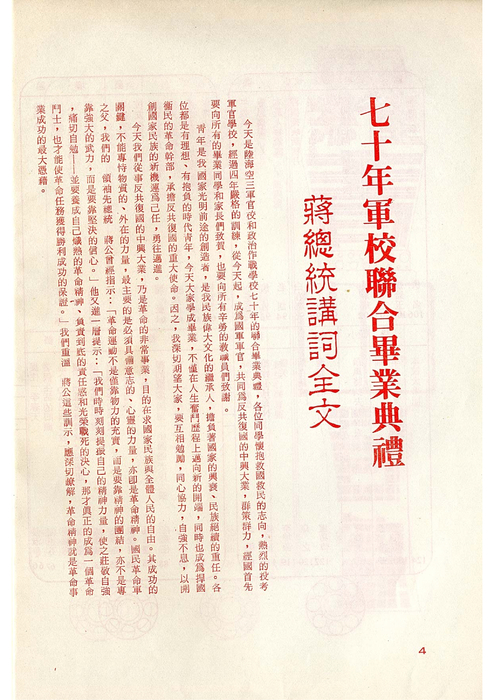 七十年軍校聯合畢業典禮
蔣總統講詞全文
今天是陸海空三軍官校和政治作戰學校七十年的聯合畢業典禮，各位同學懷抱救國救民的志向，熱烈的投考
軍官學校，經過四年嚴格的訓練，從今天起，成為國軍軍官，共同為反共復國的中興大業，群策群力，經國首先
要向所有的畢業同學和家長們致賀，也要向所有辛勞的教職員們致謝。
青年是我國家光明前途的創造者，是我民族偉大文化的繼承人，擔負著國家的興衰、民族絕續的重任。各
位都是有理想、有抱負的時代青年，今天大家學成畢業，不僅在人生奮鬥歷程上邁向新的開端，同時也成為捍國
衛民的革命幹部，承擔反共復國的重大使命。因之，我深切期望大家，要互相勉勵，同心協力，自強不息，以開
創國家民族的新機運為己任，勇往邁進。
今天我們從事反共復國的中興大業，乃是革命的非常事業，目的在求國家民族與全體人民的自由。其成功的
關鍵，不能專恃物質的、外在的力量，最主要的是必須具備意志的、心靈的力量，亦即是革命精神。國民革命軍
之父，我們的　領袖先總統　蔣公曾經指示：「革命運動不是僅靠物力的充實，而是要靠精神的團結，亦不是專
靠強大的武力，而是要靠堅決的信心。」他又進一層提示：「我們時時刻刻提振自己的精神力量，使之莊敬自強
，痛切自勉──並要養成自己熾熱的革命精神、負責到底的責任感和光榮戰死的決心，那才真正的成為一個革命
鬥士，也才能使革命任務獲得勝利成功的保證。」我們重溫　蔣公這些訓示，應深切瞭解，革命精神就是革命事
業成功的最大憑藉。
4